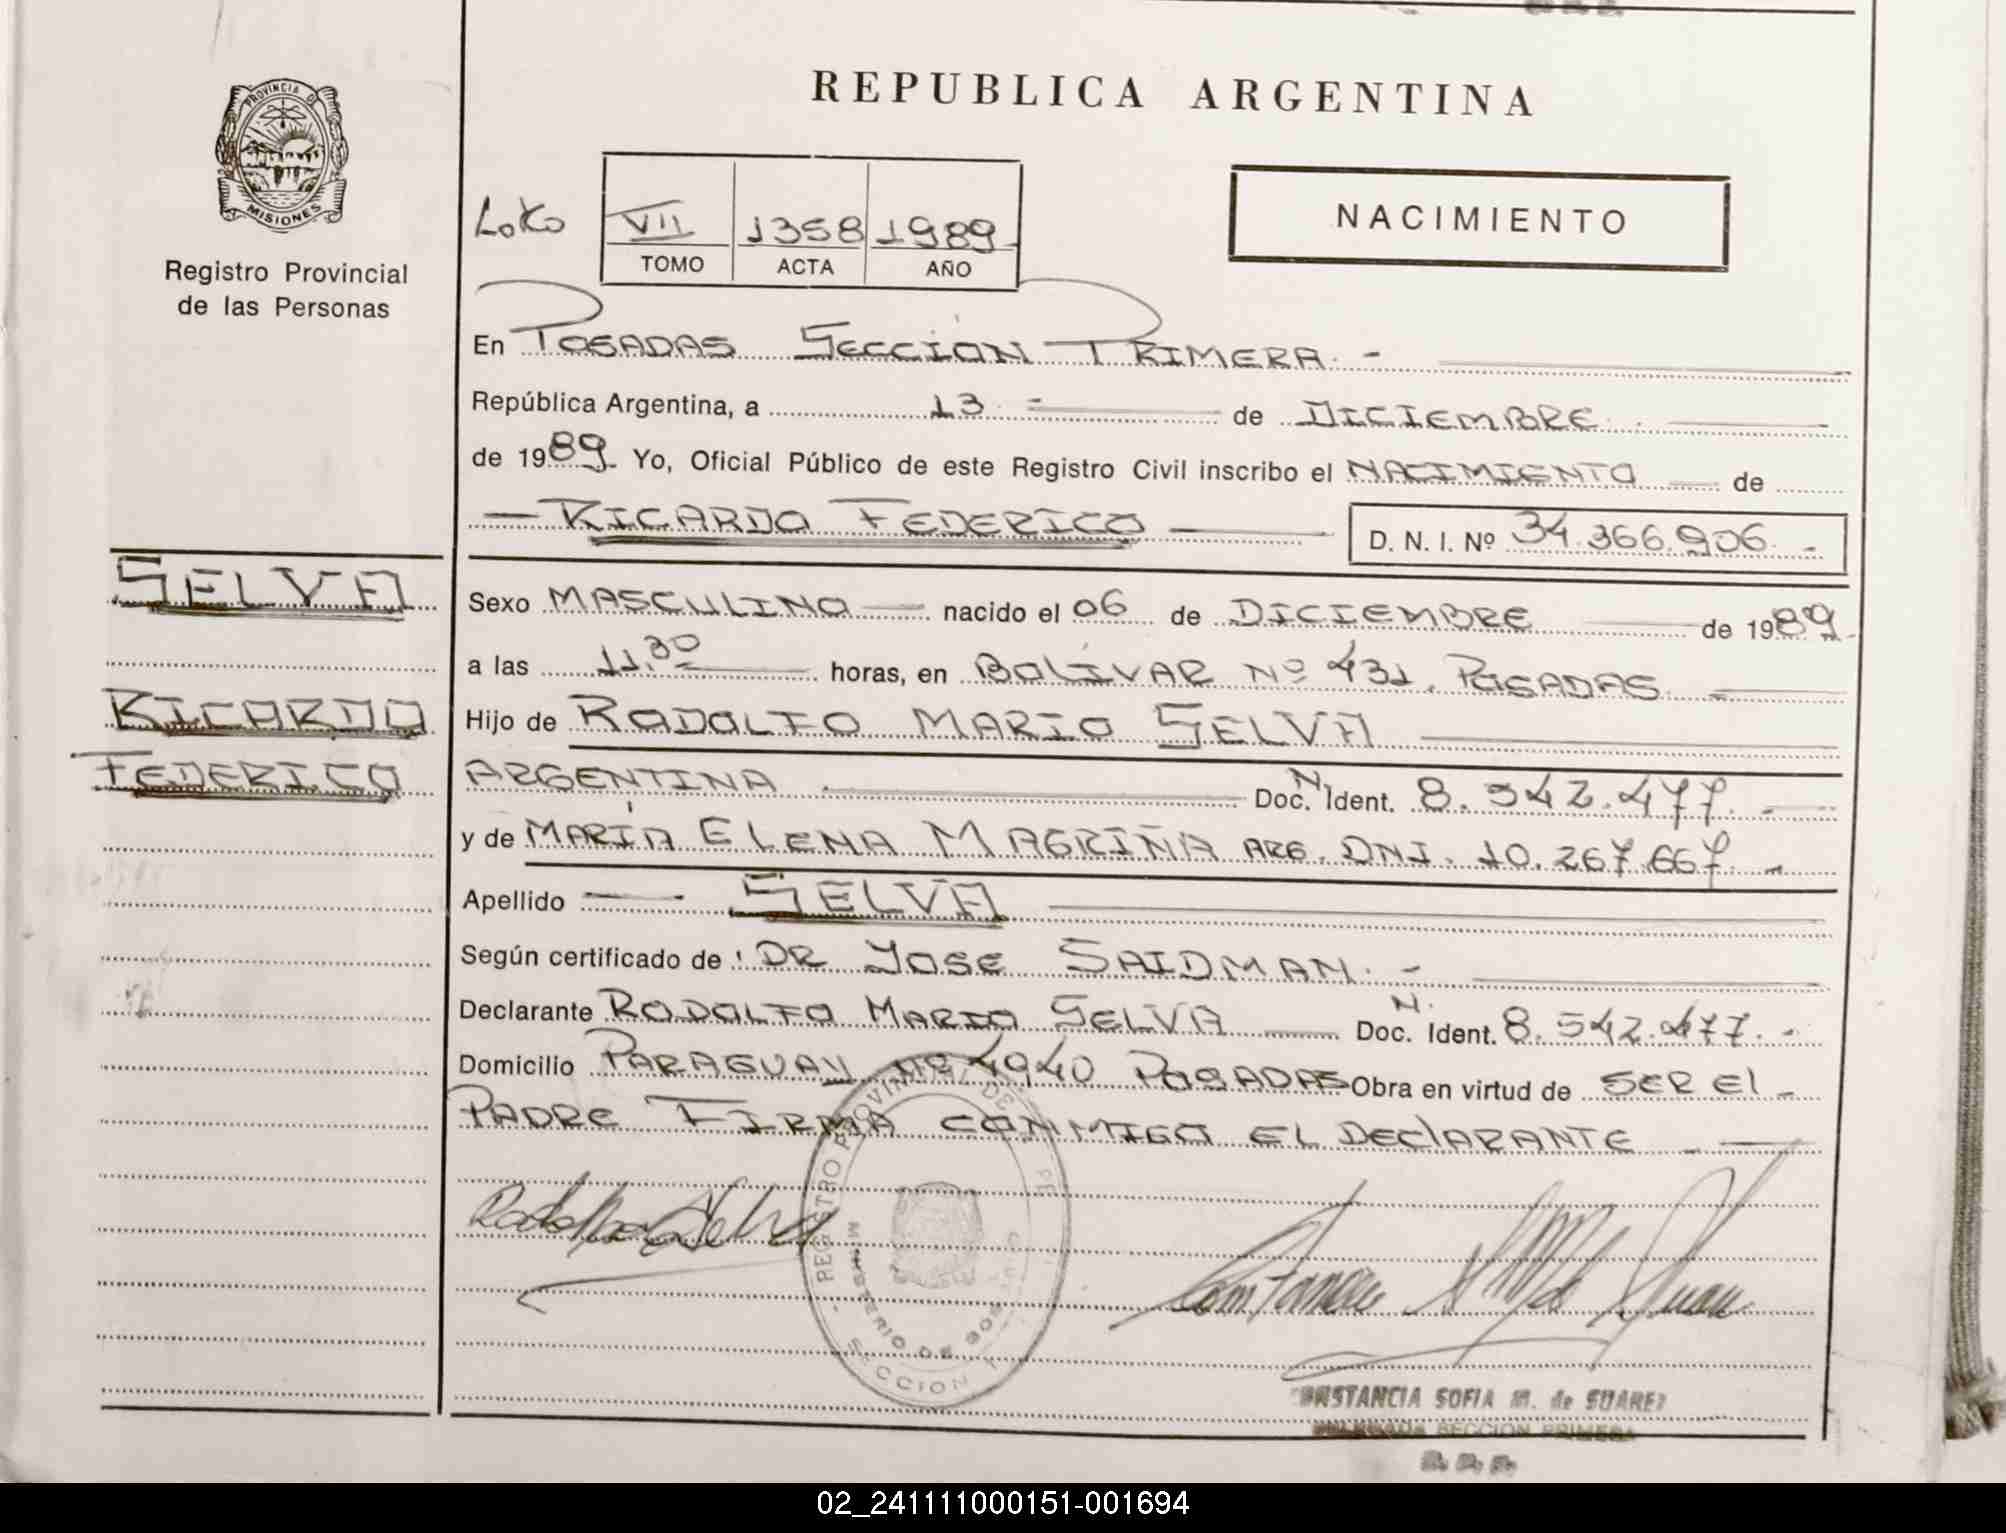 REPUBLICA ARGENTINA
PROVINCIA DE
MISIONES
Registro Provincial
de las Personas
NACIMIENTO
VII 1358 1989
TOMO ACTA AÑO
En POSADAS SECCIÓN PRIMERA. -
República Argentina, a 13 - de DICIEMBRE
de 1989. Yo, Oficial Público de este Registro Civil inscribo el NACIMIENTO de
RICARDO FEDERICO D. N. I. Nº 34.366.906. -
SELVA
RICARDO
FEDERICO
Sexo MASCULINO nacido el 06 de DICIEMBRE de 1989.
a las 11.30 horas, en BOLÍVAR Nº 431. POSADAS
Hijo de RODOLFO MARIO SELVA
ARGENTINA Doc. N. Ident. 8.542.477. -
y de MARÍA ELENA MAGRIÑA ARG. DNI. 10.267.667. -
Apellido SELVA
Según certificado de : DR JOSE SAIDMAN. -
Declarante RODOLFO MARIO SELVA Doc. N. Ident. 8.542.477. -
Domicilio PARAGUAY Nº 4940 POSADAS Obra en virtud de SER El
PADRE FIRMA CONMIGO EL DEClARANTE
REGISTRO PROVINCIAL DE
MINISTERIO DE GOB
SECCION
CONSTANCIA SOFIA M. de SUAREZ
DELEGADA SECCION PRIMERA
02_241111000151-001694